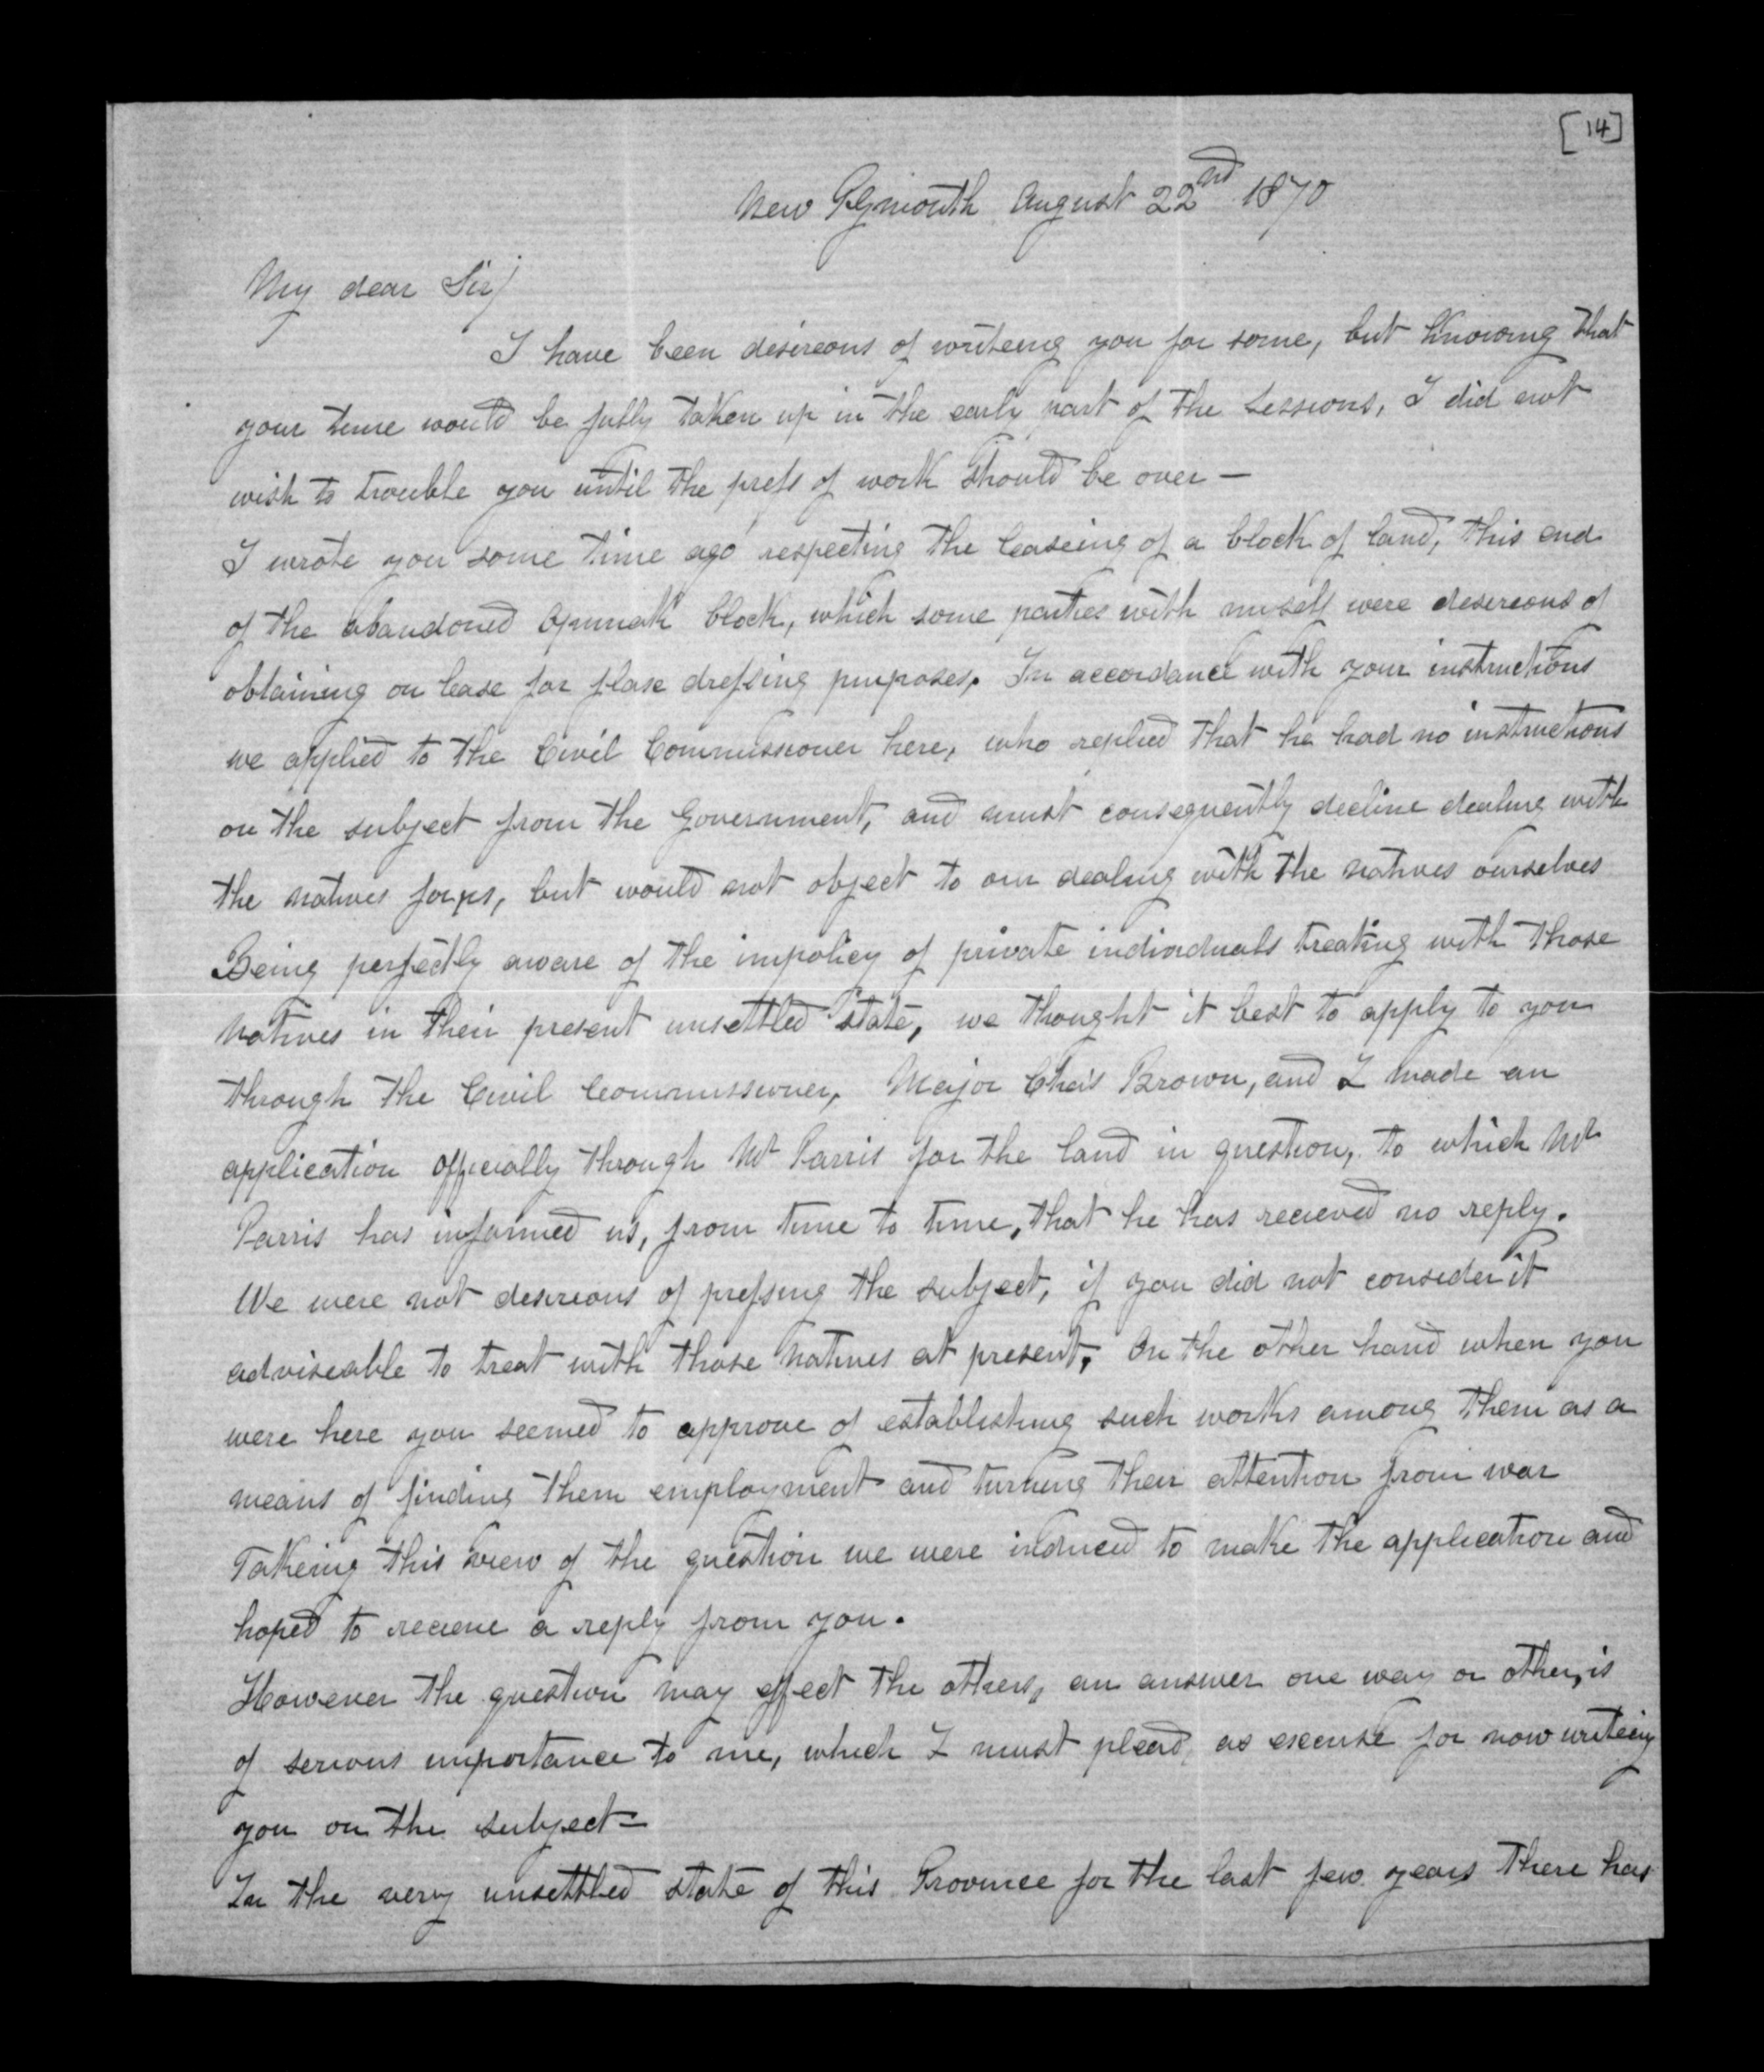 [14]
New Plymouth August 22nd 1870
My dear Sir/
I have been desireous of writeing you for some, but Knowing that
your time would be fully taken up in the early part of the Sessions, I did not
wish to trouble you until the press of work should be over —
I wrote you some time ago respecting the leaseing of a block of land, this end
of the abandoned Opunaki block, which some parties with myself were desireous of
obtaining on lease for flax dressing purposes. In accordance with your instructions
we applied to the Civil Commissioner here, who replied that he had no instructions
on the subject from the Government, and must consequently decline dealing with
the natives for us, but would not object to our dealing with the natives ourselves
Being perfectly aware of the impolicy of private individuals treating with those
Natives in their present unsettled state, we thought it best to apply to you
through the Civil Commissioner, Major Chas Brown, and I made an
application officially through Mr Parris for the land in question, to which Mr
Parris has informed us, from time to time, that he has recieved no reply.
We were not desireous of pressing the subject, if you did not consider it
adviseable to treat with those Natives at present, On the other hand when you
were here you seemed to approve of establishing such works among them as a
means of finding them employment and turning their attention from war
Takeing this view of the question we were induced to make the application and
hoped to recieve a reply from you.
However the question may effect the others, an answer one way or other, is
of serious importance to me, which I must plead, as excuse for now writeing
you on the subject =
In the very unsettled state of this Province for the last few years there has